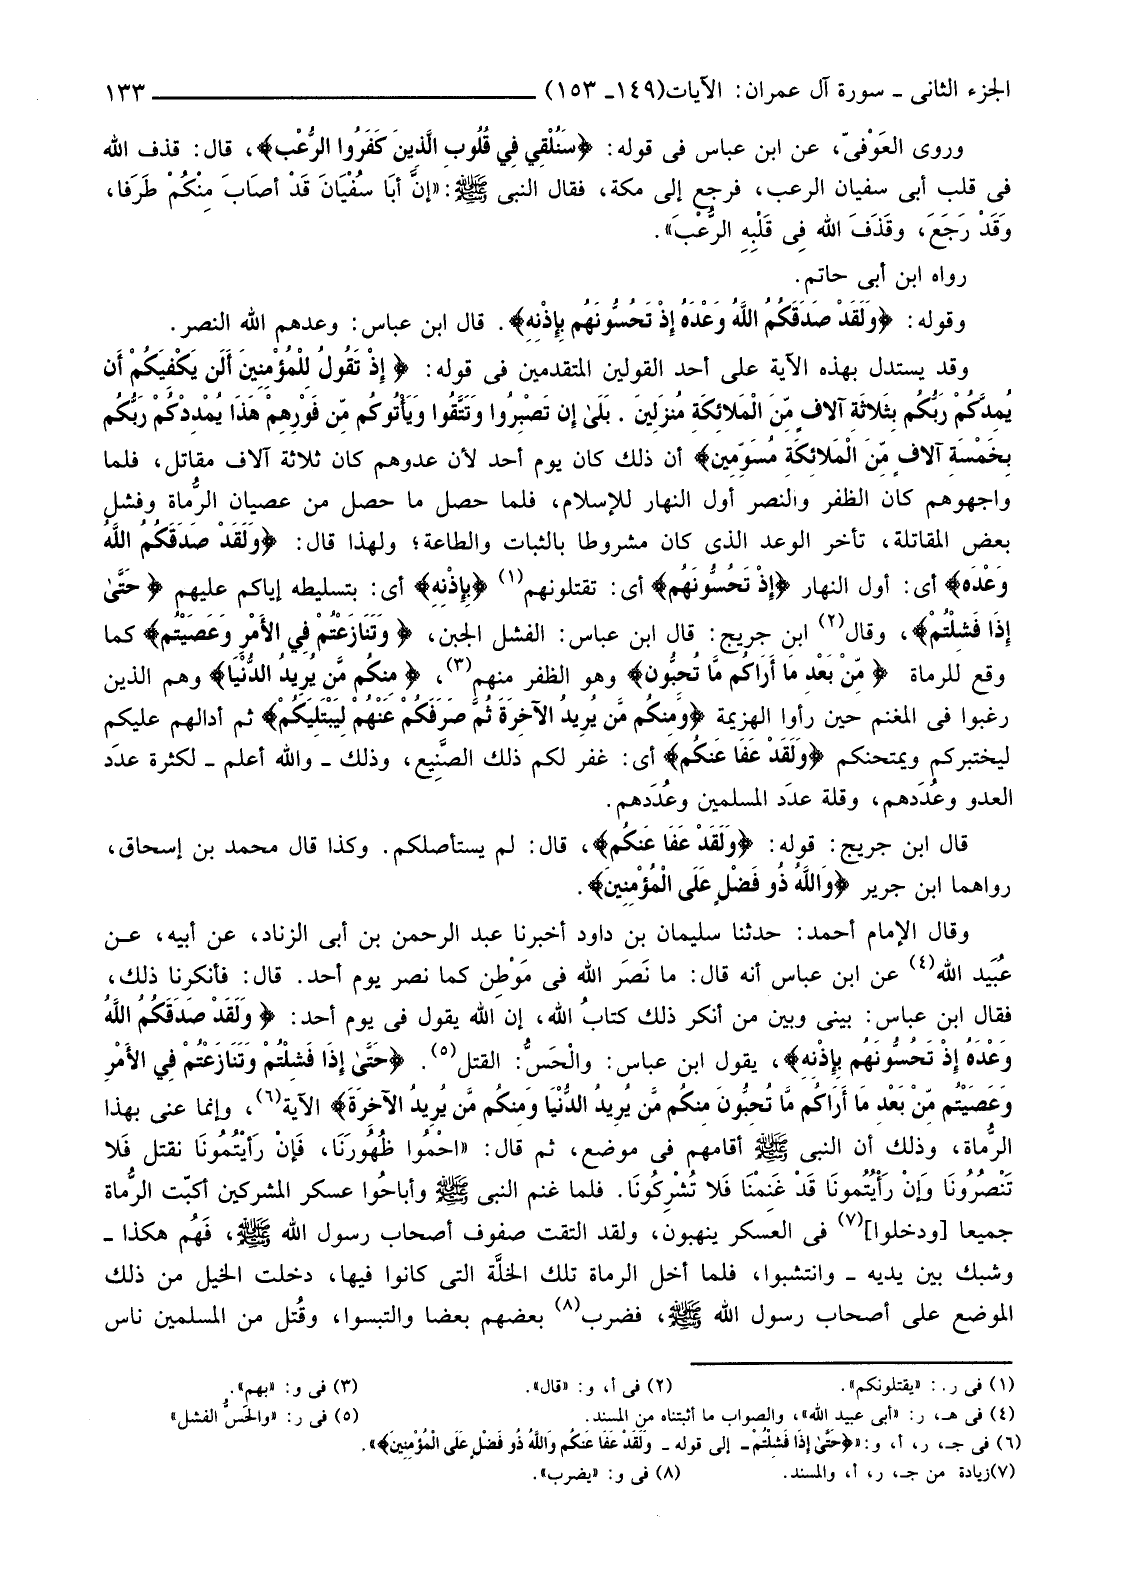 الجزء الثانى ـ سورة آل عمران: الآيات(١٤٩ـ ١٥٣) ١٣٣
وروى العَوْفىّ، عن ابن عباس فى قوله: ﴿سَنُلْقِي فِي قُلُوبِ الَّذِينَ كَفَرُوا الرُّعْب﴾، قال: قذف الله
فى قلب أبى سفيان الرعب، فرجع إلى مكة، فقال النبى ﷺ: «إنَّ أبَا سُفْيَانَ قَدْ أصَابَ مِنْكُمْ طَرَفا،
وَقَدْ رَجَعَ، وقَذَفَ الله فِى قَلْبِهِ الرُّعْبَ».
رواه ابن أبى حاتم.
وقوله: ﴿وَلَقَدْ صَدَقَكُمُ اللَّهُ وَعْدَهُ إِذْ تَحُسُّونَهُم بِإِذْنِهِ﴾. قال ابن عباس: وعدهم الله النصر.
وقد يستدل بهذه الآية على أحد القولين المتقدمين فى قوله: ﴿ إِذْ تَقُولُ لِلْمُؤْمِنِينَ أَلَن يَكْفِيَكُمْ أَن
يُمِدَّكُمْ رَبُّكُم بِثَلاثَةِ آلافٍ مِّنَ الْمَلائِكَةِ مُنزَلِينَ . بَلَىٰ إِن تَصْبِرُوا وَتَتَّقُوا وَيَأْتُوكُم مِّن فَوْرِهِمْ هَذَا يُمْدِدْكُمْ رَبُّكُم
بِخَمْسَةِ آلافٍ مِّنَ الْمَلائِكَةِ مُسَوِّمِين﴾ أن ذلك كان يوم أحد لأن عدوهم كان ثلاثة آلاف مقاتل، فلما
واجهوهم كان الظفر والنصر أول النهار للإسلام، فلما حصل ما حصل من عصيان الرُّماة وفشل
بعض المقاتلة، تأخر الوعد الذى كان مشروطا بالثبات والطاعة؛ ولهذا قال: ﴿وَلَقَدْ صَدَقَكُمُ اللَّهُ
وَعْدَه﴾ أى: أول النهار ﴿إِذْ تَحُسُّونَهُم﴾ أى: تقتلونهم(١) ﴿بِإِذْنِه﴾ أى: بتسليطه إياكم عليهم ﴿ حَتَّىٰ
إِذَا فَشِلْتُمْ﴾، وقال(٢) ابن جريج: قال ابن عباس: الفشل الجبن، ﴿ وَتَنَازَعْتُمْ فِي الأَمْرِ وَعَصَيْتُم﴾ كما
وقع للرماة ﴿ مِّنْ بَعْدِ مَا أَرَاكُم مَّا تُحِبُّون﴾ وهو الظفر منهم(٣)، ﴿ مِنكُم مَّن يُرِيدُ الدُّنْيَا﴾ وهم الذين
رغبوا فى المغنم حين رأوا الهزيمة ﴿وَمِنكُم مَّن يُرِيدُ الآخِرَةَ ثُمَّ صَرَفَكُمْ عَنْهُمْ لِيَبْتَلِيَكُمْ﴾ ثم أدالهم عليكم
ليختبركم ويمتحنكم ﴿وَلَقَدْ عَفَا عَنكُم﴾ أى: غفر لكم ذلك الصَّنِيع، وذلك ـ والله أعلم ـ لكثرة عدَد
العدو وعُدَدهم، وقلة عدَد المسلمين وعُدَدهم.
قال ابن جريج: قوله: ﴿وَلَقَدْ عَفَا عَنكُم﴾، قال: لم يستأصلكم. وكذا قال محمد بن إسحاق،
رواهما ابن جرير ﴿وَاللَّهُ ذُو فَضْلٍ عَلَى الْمُؤْمِنِينَ﴾.
وقال الإمام أحمد: حدثنا سليمان بن داود أخبرنا عبد الرحمن بن أبى الزناد، عن أبيه، عـن
عُبَيد الله(٤) عن ابن عباس أنه قال: ما نَصَر الله فى مَوْطِن كما نصر يوم أحد. قال: فأنكرنا ذلك،
فقال ابن عباس: بينى وبين من أنكر ذلك كتابُ الله، إن الله يقول فى يوم أحد: ﴿ وَلَقَدْ صَدَقَكُمُ اللَّهُ
وَعْدَهُ إِذْ تَحُسُّونَهُم بِإِذْنِه﴾، يقول ابن عباس: والْحَسُّ: القتل(٥). ﴿حَتَّىٰ إِذَا فَشِلْتُمْ وَتَنَازَعْتُمْ فِي الأَمْرِ
وَعَصَيْتُم مِّنْ بَعْدِ مَا أَرَاكُم مَّا تُحِبُّونَ مِنكُم مَّن يُرِيدُ الدُّنْيَا وَمِنكُم مَّن يُرِيدُ الآخِرَةَ﴾ الآية(٦)، وإنما عنى بهذا
الرُّماة، وذلك أن النبى ﷺ أقامهم فى موضع، ثم قال: «احْمُوا ظُهُورَنَا، فَإنْ رَأيْتُمُونَا نقتل فَلا
تَنْصُرُونَا وَإنْ رَأَيْتُمونَا قَدْ غَنِمْنَا فَلا تُشْرِكُونَا. فلما غنم النبى ﷺ وأباحُوا عسكر المشركين أكبّت الرُّماة
جميعا [ودخلوا](٧) فى العسكر ينهبون، ولقد التقت صفوف أصحاب رسول الله ﷺ، فَهُم هكذا ـ
وشبك بين يديه ـ وانتشبوا، فلما أخل الرماة تلك الخلَّة التى كانوا فيها، دخلت الخيل من ذلك
الموضع على أصحاب رسول الله ﷺ، فضرب(٨) بعضهم بعضا والتبسوا، وقُتل من المسلمين ناس
(١) فى ر.: «يقتلونكم». (٢) فى أ، و: «قال». (٣) فى و: «بهم».
(٤) فى هـ، ر: «أبى عبيد الله»، والصواب ما أثبتناه من المسند. (٥) فى ر: «والحَسُّ الفشل»
(٦) فى جـ، ر، أ، و:«﴿حَتَّىٰ إِذَا فَشِلْتُمْ ـ إلى قوله ـ وَلَقَدْ عَفَا عَنكُم وَاللَّهُ ذُو فَضْلٍ عَلَى الْمُؤْمِنِينَ﴾».
(٧)زيادة من جـ، ر، أ، والمسند. (٨) فى و: «يضرب».